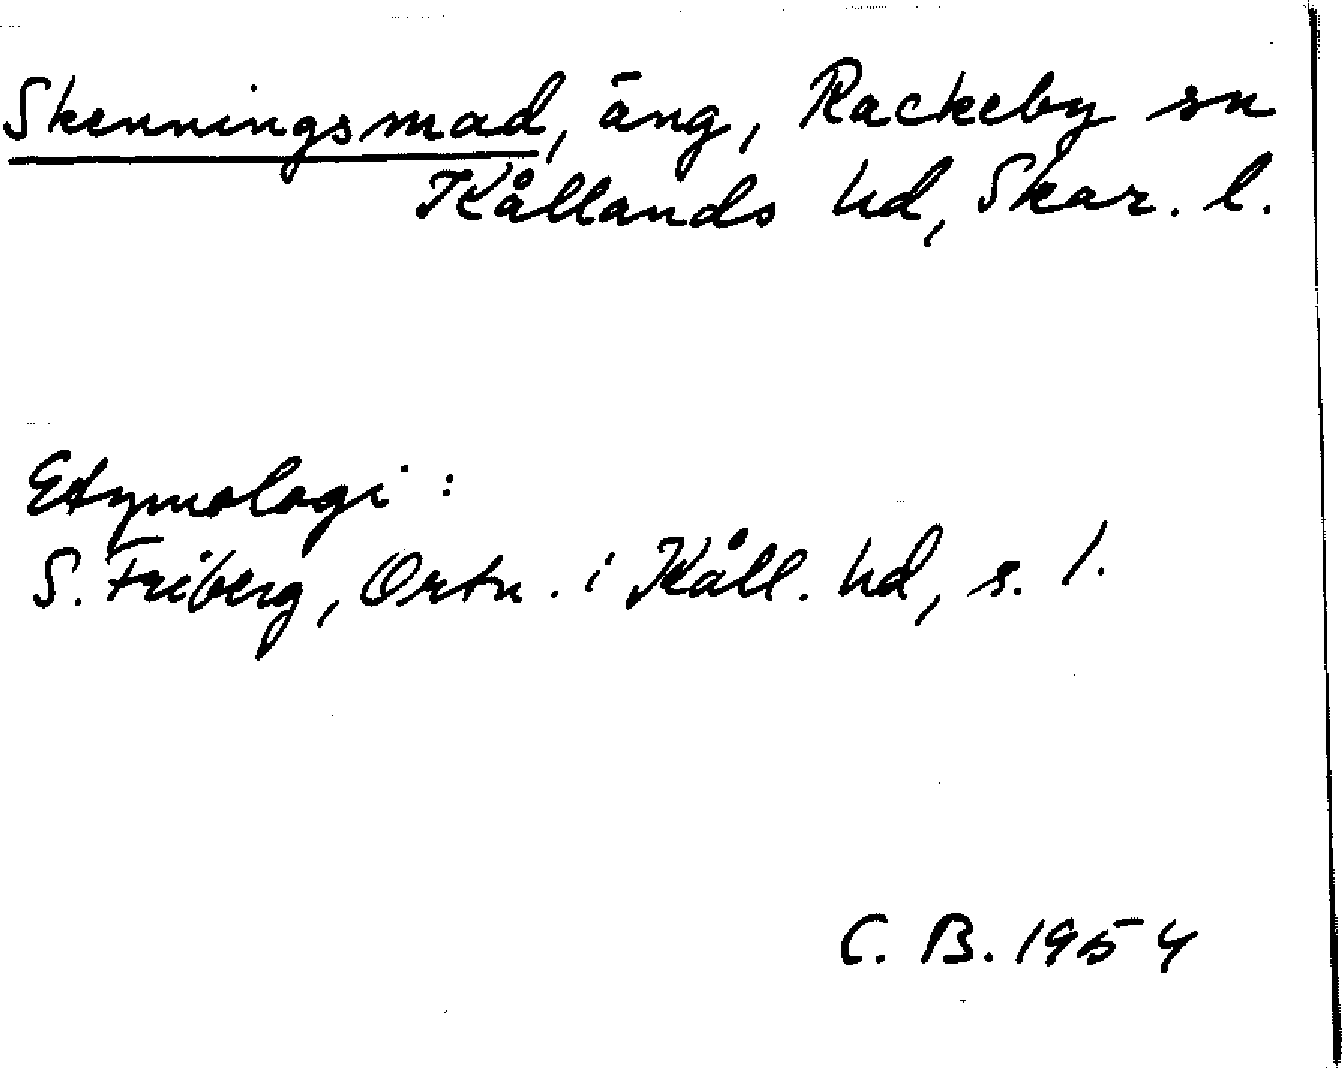 Skenningsmad, äng, Rackeby sn
Kållands hd, Skar. l.
Etymologi:
S. Friberg, Ortn. i Kåll. hd, s. 1.
C. B. 1954